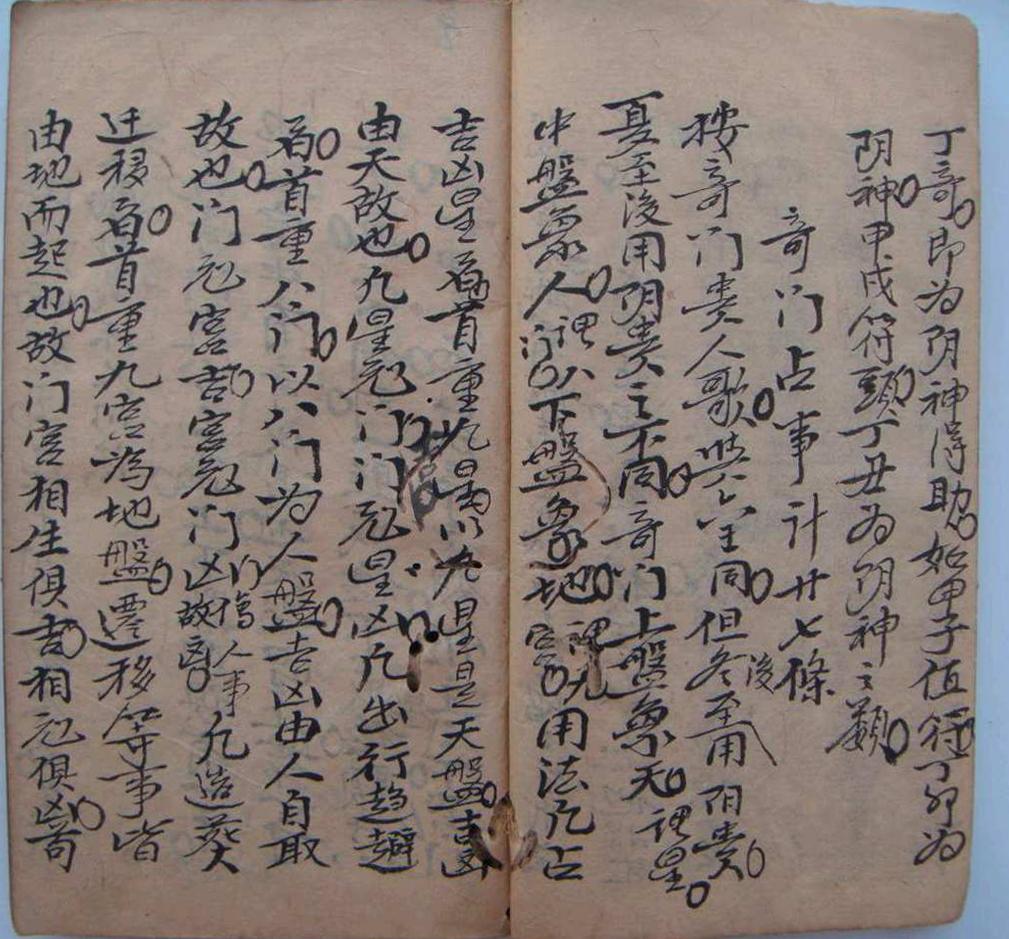 丁奇即为阴神得助如甲子值符丁卯为
阴神甲戌符頭丁丑为阴神之類
奇门占事计廿七條
按奇门贵人歌皆同但冬至後用阳贵
夏至後用阴贵之不同奇门上盤象天谓星
中盤象人谓八门下盤象地谓九宫用法凡占
吉凶星看首重九星以九星是天盤吉凶
由天故也九星克门门克星凶凡出行趋避
看首重八门以八门为人盤吉凶由人自取
故也门克宫吉宫克门凶人事故凡造葵
迁移看首重九宫為地盤遷移等事皆
由地而起也故门宫相生俱吉相克俱凶奇